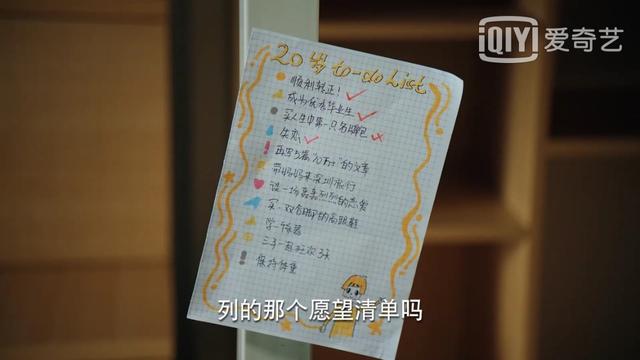 iQIYI 爱奇艺
20岁 to-do List
顺利转正!
成为优秀毕业生
买人生中第一只名牌包
失恋
再写5篇"10万+"的文章
带妈妈来深圳旅行
谈一场轰轰烈烈的恋爱
买一双合脚的高跟鞋
学一乐器
保持体重
列的那个愿望清单吗